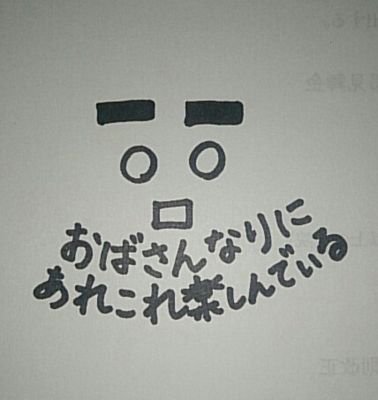 おばさんなりに
あれこれ楽しんでいる